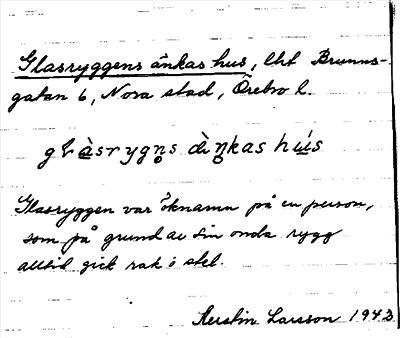 Glasryggens änkas hus, lht Brunns-
gatan 6, Nora stad, Örebro l.
glàsrygn̥s àŋkas hús
Glasryggen var öknamn på en person,
som på grund av sin onda rygg
alltid gick rak o stel.
Kerstin Larsson 1943